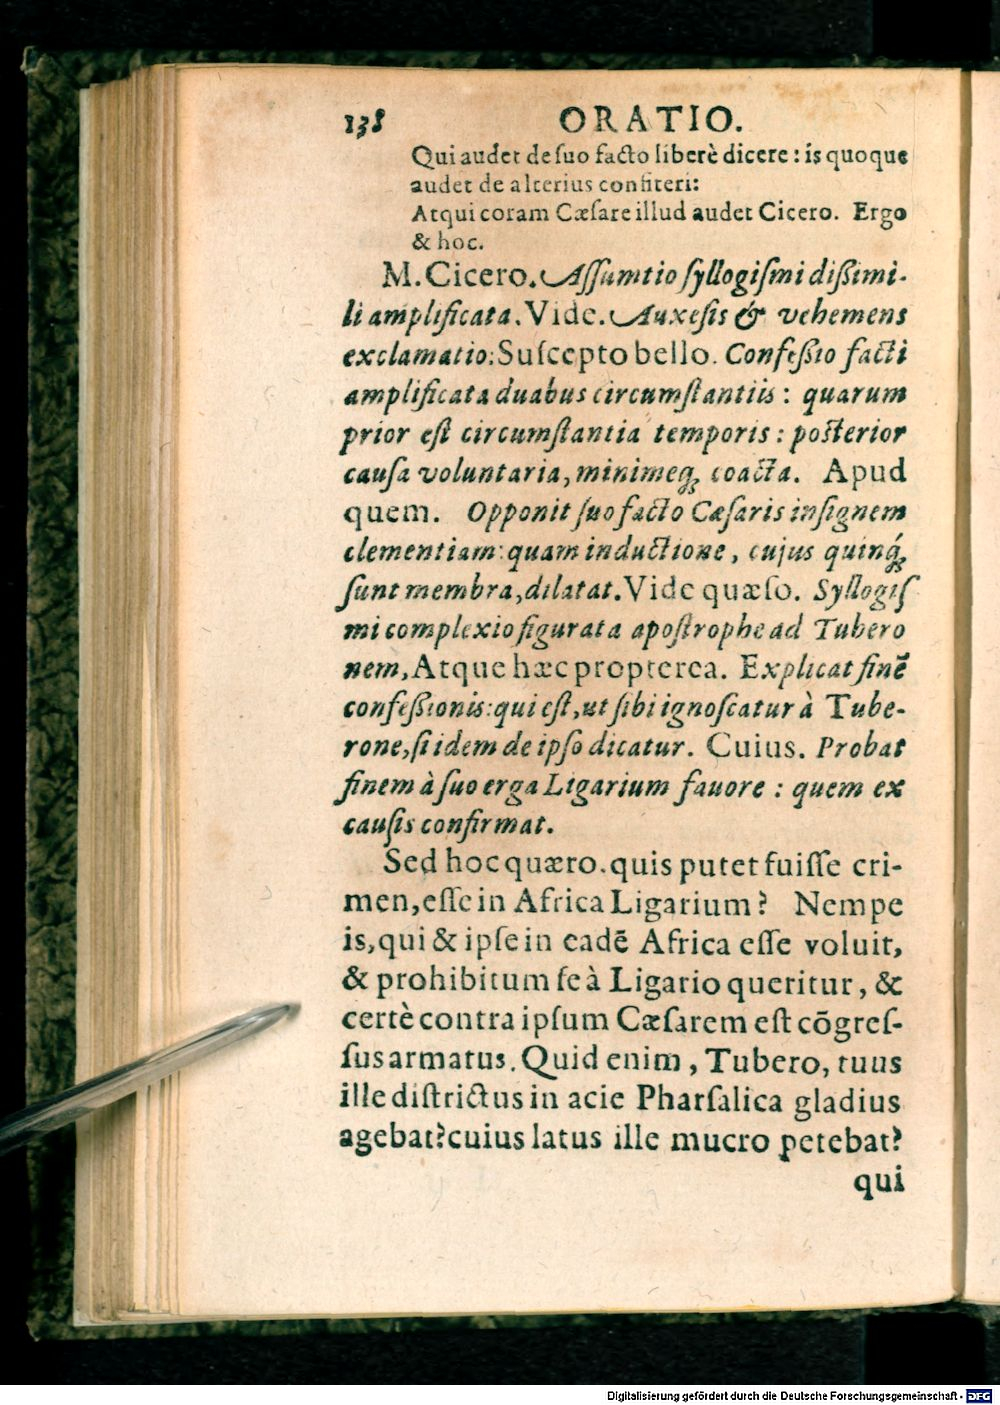 138 ORATIO.
Qui audet de ſuo facto liberè dicere : is quoque
audet de alterius confiteri:
Atqui coram Cæſare illud audet Cicero. Ergo
& hoc.
M. Cicero. Aſſumtio ſyllogiſmi dißimi-
li amplificata. Vide. Auxeſis & vehemens
exclamatio: Suſcepto bello. Confeßio facti
amplificata duabus circumſtantiis : quarum
prior eſt circumſtantia temporis : poſterior
cauſa voluntaria, minimeq́; coacta. Apud
quem. Opponit ſuo facto Cæſaris inſignem
clementiam: quam inductione, cujus quinq́;
ſunt membra, dilatat. Vide quæſo. Syllogiſ
mi complexio figurata apoſtrophe ad Tubero
nem, Atque hæc propterea. Explicat finē
confeßionis: qui eſt, ut ſibi ignoſcatur à Tube-
rone, ſi idem de ipſo dicatur. Cuius. Probat
finem à ſuo erga Ligarium favore : quem ex
cauſis confirmat.
Sed hoc quæro. quis putet fuiſſe cri-
men, eſſe in Africa Ligarium? Nempe
is, qui & ipſe in eadē Africa eſſe voluit,
& prohibitum ſe à Ligario queritur, &
certè contra ipſum Cæſarem eſt cōgreſ-
ſus armatus. Quid enim, Tubero, tuus
ille diſtrictus in acie Pharſalica gladius
agebat? cuius latus ille mucro petebat?
qui
Digitalisierung gefördert durch die Deutsche Forschungsgemeinschaft - DFG